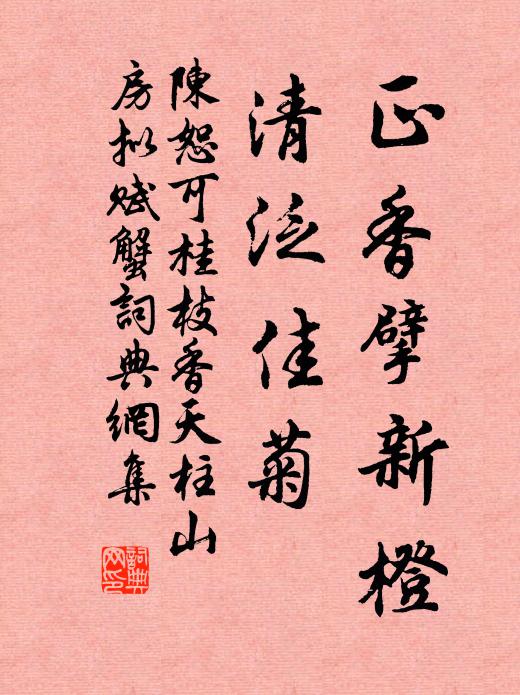 正香擘新橙
清泛佳菊
陳恕可桂枝香天柱山
房拟赋蟹詞典網集
詞典网印